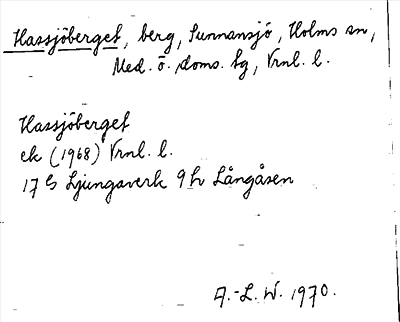 Hassjöberget, berg, Sunnansjö, Holms sn,
Med. ö. doms. tg, Vrnl. l.
Hassjöberget
ek (1968) Vrnl. l.
17 G Ljungaverk 9 h Långåsen
A.-L. W. 1970.